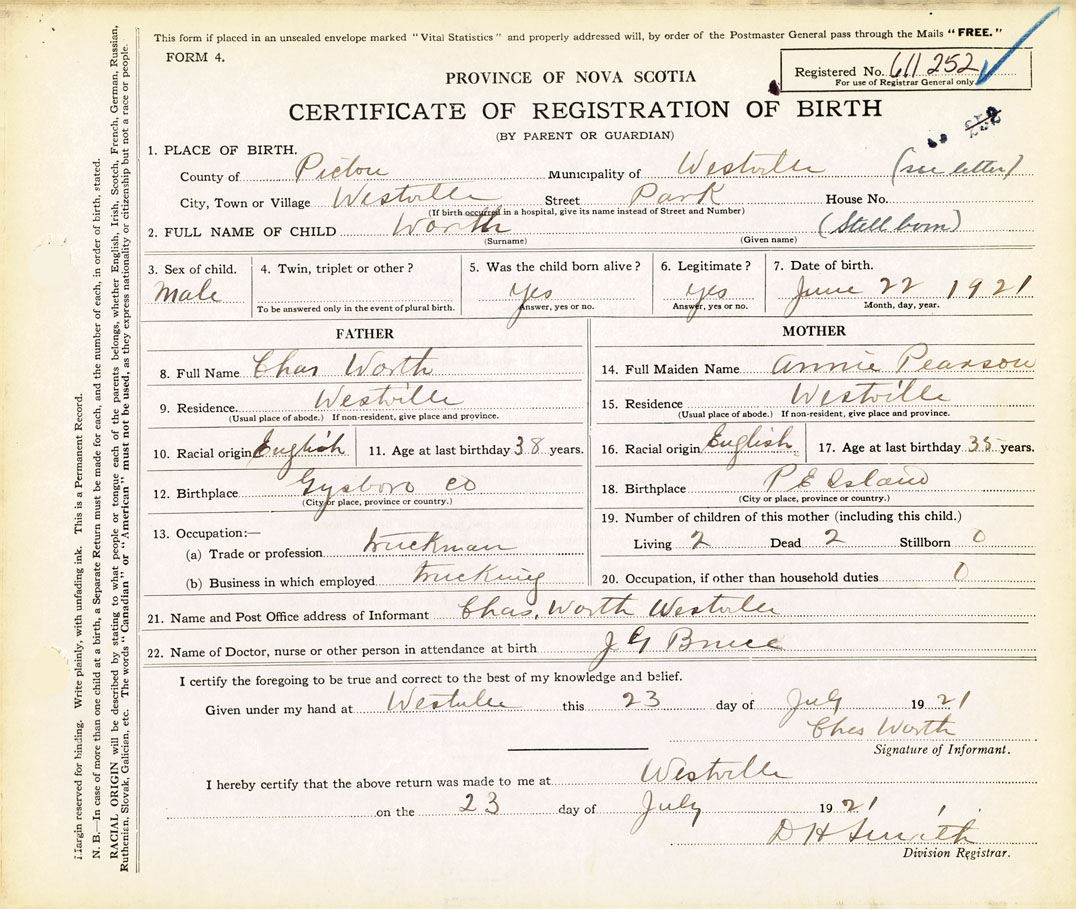 This form if placed in an unsealed envelope marked "Vital Statistics" and properly addressed will, by order of the Postmaster General pass through the Mails "FREE."
FORM 4.
Registered No. 611 252
For use of Registrar General only
PROVINCE OF NOVA SCOTIA
CERTIFICATE OF REGISTRATION OF BIRTH
(BY PARENT OR GUARDIAN)
252
1. PLACE OF BIRTH.
County of Pictou Municipality of Westville (see letter)
City, Town or Village Westville Street Park House No.
(If birth occurred in a hospital, give its name instead of Street and Number)
2. FULL NAME OF CHILD Worth (Still born)
(Surname) (Given name)
3. Sex of child. 4. Twin, triplet or other? 5. Was the child born alive? 6. Legitimate? 7. Date of birth.
Male Yes Yes June 22 1921
To be answered only in the event of plural birth. Answer, yes or no. Answer, yes or no. Month, day, year.
FATHER
8. Full Name Chas Worth
9. Residence. Westville
(Usual place of abode.) If non-resident, give place and province.
10. Racial origin English 11. Age at last birthday 38 years.
12. Birthplace Gysboro Co
(City or place, province or country.)
13. Occupation:—
(a) Trade or profession truckman
(b) Business in which employed trucking
MOTHER
14. Full Maiden Name Annie Pearson
15. Residence Westville
(Usual place of abode.) If non-resident, give place and province.
16. Racial origin English 17. Age at last birthday 35 years.
18. Birthplace P E Island
(City or place, province or country.)
19. Number of children of this mother (including this child.)
Living 2 Dead 2 Stillborn 0
20. Occupation, if other than household duties 0
21. Name and Post Office address of Informant Chas. Worth Westville
22. Name of Doctor, nurse or other person in attendance at birth J G Bruce
I certify the foregoing to be true and correct to the best of my knowledge and belief.
Given under my hand at Westville this 23 day of July 1921
Chas Worth
Signature of Informant.
I hereby certify that the above return was made to me at Westville
on the 23 day of July 1921
D H Smith
Division Registrar.
Margin reserved for binding. Write plainly, with unfading ink. This is a Permanent Record.
N. B.—In case of more than one child at a birth, a Separate Return must be made for each, and the number of each, in order of birth, stated.
RACIAL ORIGIN will be described by stating to what people or tongue each of the parents belongs, whether English, Irish, Scotch, French, German, Russian,
Ruthenian, Slovak, Galician, etc. The words "Canadian" or "American" must not be used, as they express nationality or citizenship but not a race or people.